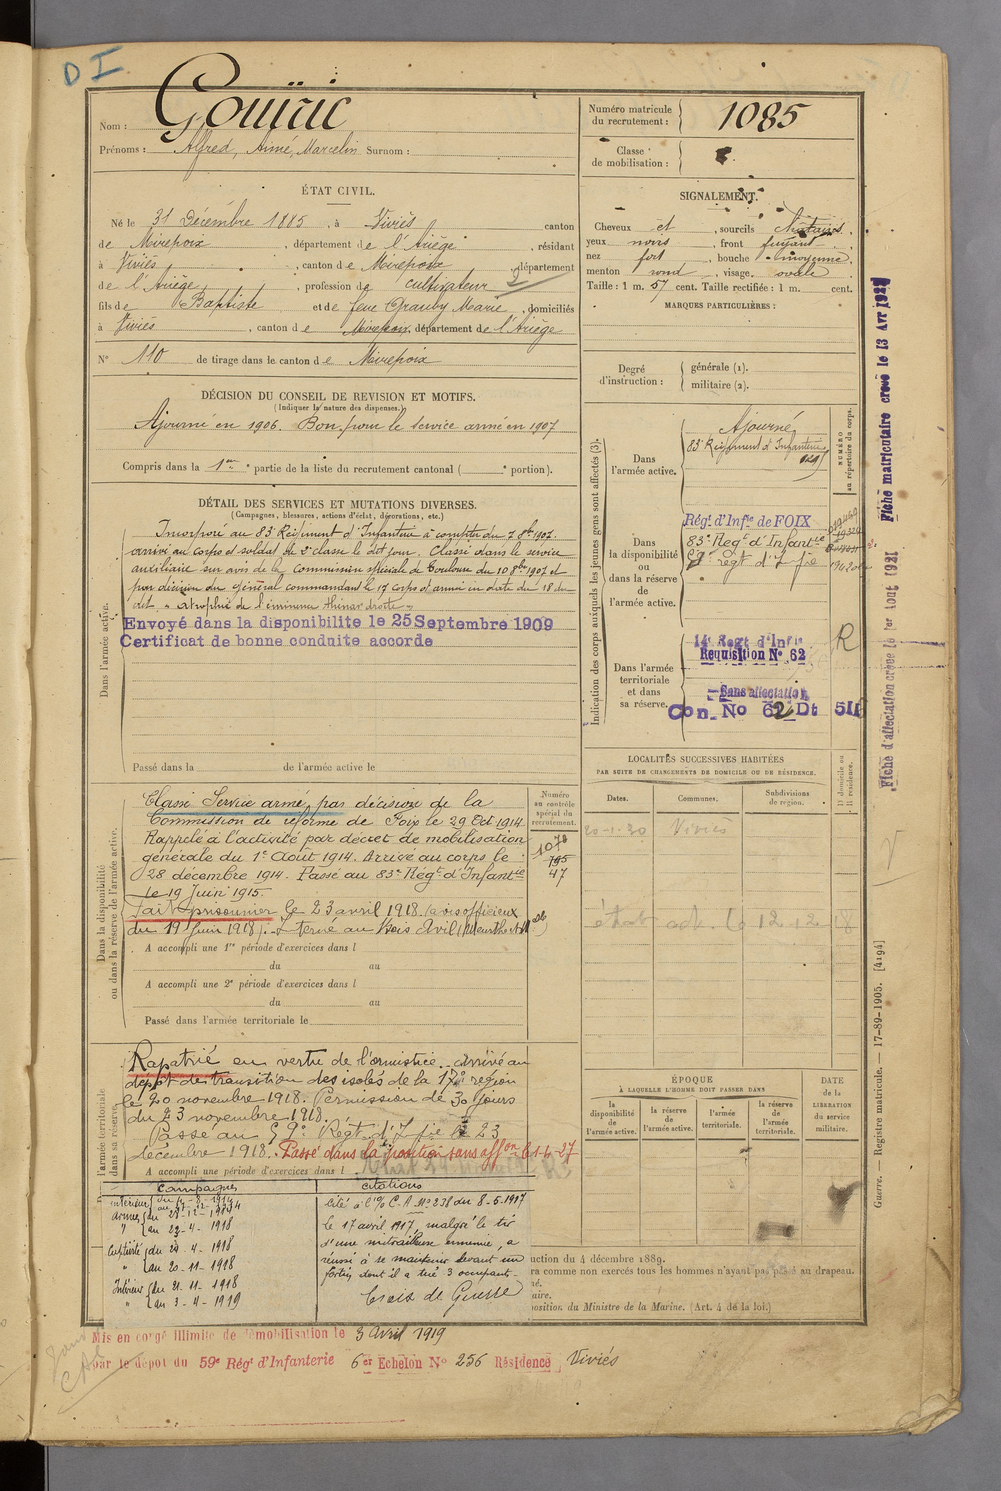 D I
Nom : Gouiric
Prénoms : Alfred, Aimé, Marcelin Surnom :
Numéro matricule du recrutement : 1085
Classe de mobilisation :
ÉTAT CIVIL.
Né le 31 Décembre 1885, à Viviès canton
de Mirepoix, département de l'Ariège, résidant
à Viviès, canton de Mirepoix, département
de l'Ariège, profession de cultivateur 2
fils de Baptiste et de feue Grauby Marie, domiciliés
à Viviès, canton de Mirepoix, département de l'Ariège
N° 110 de tirage dans le canton de Mirepoix
SIGNALEMENT.
Cheveux et, sourcils chatains,
yeux noirs, front fuyant,
nez fort, bouche moyenne,
menton rond, visage ovale
Taille : 1 m. 57 cent. Taille rectifiée : 1 m. cent.
MARQUES PARTICULIÈRES :
DÉCISION DU CONSEIL DE REVISION ET MOTIFS.
(Indiquer la nature des dispenses.)
Ajourné en 1906. Bon pour le service armé en 1907
Compris dans la 1re partie de la liste du recrutement cantonal ( portion).
Degré d'instruction : générale (1).
militaire (2).
DÉTAIL DES SERVICES ET MUTATIONS DIVERSES.
(Campagnes, blessures, actions d'éclat, décorations, etc.)
Dans l'armée active.
Incorporé au 83e Régiment d'Infanterie à compter du 7 8bre 1907.
arrivé au corps et soldat de 2e classe le dit jour. Classé dans le service
auxiliaire sur avis de la Commission spéciale de Toulouse du 10 8bre 1907 et
par décision du général commandant le 17 corps d'armée en date du 18 du
dit. « atrophie de l'éminence thénar droite »
Envoyé dans la disponibilite le 25 Septembre 1909
Certificat de bonne conduite accorde
Passé dans la de l'armée active le
Indication des corps auxquels les jeunes gens sont affectés (3).
NUMÉRO au répertoire du corps.
Dans l'armée active.
Ajourné
83e Régiment d'Infanterie
Dans la disponibilité ou dans la réserve de l'armée active.
Régt d'Infie de FOIX
83e Regt d'Infantie
59e régt d'Infie
Dans l'armée territoriale et dans sa réserve.
14e Regt d'Infie
Requisition N° 62
R
Sans affectation
Con. No 62 Dt 511
Fiche matriculaire créée le 13 Avr 192
Fiche d'affectation créée le 1er Aout 1921
Dans la disponibilité ou dans la réserve de l'armée active.
Classé Service armé, par décision de la
Commission de réforme de Foix le 29 Oct 1914
Rappelé à l'activité par décret de mobilisation
générale du 1er Août 1914. Arrivé au corps le
28 décembre 1914. Passé au 83e Régt d'Infantie
le 19 Juin 1915
Fait prisonnier le 23 avril 1918 (avis officieux
du 19 Juin 1918). Interné au Bois Avril (Meurthe et Mlle)
A accompli une 1re période d'exercices dans l
du au
A accompli une 2e période d'exercices dans l
du au
Passé dans l'armée territoriale le
Numéro au contrôle spécial du recrutement.
1078
195
47
LOCALITÉS SUCCESSIVES HABITÉES
PAR SUITE DE CHANGEMENTS DE DOMICILE OU DE RÉSIDENCE.
Dates. Communes. Subdivisions de région. D domicile ou R résidence.
20-1-30 Viviès
12-12-18
l'armée territoriale dans sa réserve.
Rapatrié en vertu de l'armistice. Arrivé au
dépôt de transition des isolés de la 17e région
le 20 novembre 1918. Permission de 30 jours
du 23 novembre 1918.
Passé au 59e Régt d'Infie le 23
décembre 1918. Passé dans la position sans affon le 1-4-27
A accompli une période d'exercices dans l
ÉPOQUE
À LAQUELLE L'HOMME DOIT PASSER DANS
la disponibilité de l'armée active. la réserve de l'armée active. l'armée territoriale. la réserve de l'armée territoriale.
DATE de la LIBÉRATION du service militaire.
Campagnes
Intérieur du 4-8-1914
Armées du 28-12-1914
" au 23-4-1918
Captivité du 24-4-1918
" au 20-11-1918
Intérieur du 21-11-1918
" au 3-4-1919
citations
Cité à l'O/ C.A. N° 238 du 8-5-1917
le 17 avril 1917, malgré le tir
d'une mitrailleuse ennemie, a
réussi à se maintenir devant un
fortin dont il a tué 3 occupants
Croix de Guerre
uction du 4 décembre 1889.
ra comme non exercés tous les hommes n'ayant pas passé au drapeau.
né.
uaire.
position du Ministre de la Marine. (Art. 4 de la loi.)
Guerre. — Registre matricule. — 17-89-1905. [4194]
Mis en congé illimité de démobilisation le 3 Avril 1919
par le dépot du 59e Régt d'Infanterie 6er Echelon No 256 Résidence Viviès